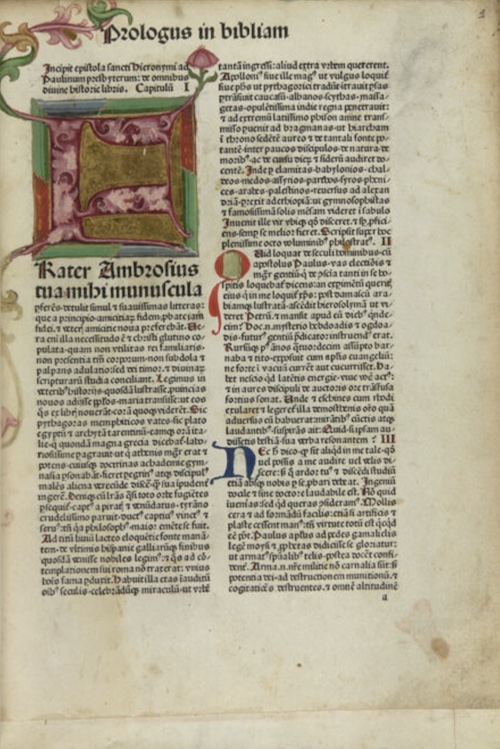 Prologus in bibliam
Incipit epistola sancti Hieronymi ad
Paulinum presbyterum: de omnibus
diuine historie libris. Capitulū I
Frater Ambrosius
tua mihi munuscula
perferēs detulit simul ⁊ suauissimas litteras:
que a principio amicitiaȝ fidem ꝓbate iam
fidei ⁊ veterȝ amicitie noua preferebāt. Ue-
ra em̄ illa necessitudo ē ⁊ christi glutino co-
pulata: quam non vtilitas rei familiaris
non presentia tm̄ corporum: non subdola ⁊
palpans adulatio: sed dei timor: ⁊ diuinaȝ
scripturarū studia conciliant. Legimus in
veteribꝰ historijs quosdā lustrasse ꝓuincias
nouos adisse ppl̄os maria transisse: vt eos
qs ex libris nouerāt: corā quoqȝ viderēt. Sic
pythagoras memphiticos vates: sic plato
egyptū ⁊ archytā tarentinū: eamqȝ orā ita-
lie: q̄ quondā magna grecia dicebat: labo-
riosissime pagrauit: vt q̄ athenis mgr̄ erat ⁊
potens: cuiusqȝ doctrinas achademie gym-
nasia ꝑsonabāt: fieret pegrin atqȝ discipulꝰ:
malēs aliena verecūde discēqȝ sua ipudent̄
ingerē. Deniqȝ cū lrās qsi toto orbe fugiētes
ꝓseqtur: captꝰ a piratꝭ ⁊ venūdatus: tyrāno
crudelissimo paruit: ductꝰ captiuꝰ vinctꝰ ⁊
seruꝰ: tn̄ qȝ philosophꝰ maior emēte se fuit.
Ad titū liuiū lacteo eloquētie fonte manā-
tem: de vltimis hispanie galliarūqȝ finibus
quosdā venisse nobiles legimꝰ: ⁊ qs ad cō-
templationem sui roma nō traxerat: vnius
hoīs fama ꝑduxit. Habuit illa etas īauditū
oībꝰ seculis celebrādūqȝ miraculū: vt vrbē
tantā ingressi: aliud extra vrbem quererent.
Apollonꝰ siue ille magꝰ vt vulgus loquit̄
siue phs vt pythagorici tradūt: ītrauit psas
ptrāsiuit caucasū: albanos: scythas: massa-
getas: opulētissima indie regna penetrauit:
⁊ ad extremū latissimo phison amne trans-
misso puenit ad bragmanas: vt hiarcham
ī throno sedētē aureo ⁊ de tantali fonte po-
tantē: inter paucos discipulos: de natura: de
moribꝰ: ac de cursu dieȝ ⁊ siderū audiret do-
centē. Inde ꝑ elamitas: babylonios: chal-
deos: medos: assyrios: parthos: syros: pheni-
ces: arabes: palestinos: reuersus ad alexan
driā: prexit ad ethiopiā: vt gymnosophistas
⁊ famosissimā solis mēsam videret ī sabulo
Inuenit ille vir vbiqȝ qd disceret: ⁊ sp ꝓfici-
ens: semp se melior fieret. Scripsit super hoc
plenissime octo voluminibꝰ philostratꝰ. II
Quid loquar de seculi hominibus: cū
apostolus Paulus: vas electiōis ⁊
mgr̄ gentiū: q de ꝓscia tanti in se ho-
spitis loquebat̄ dicens: an experimētū querit̄
eius q in me loquit̄ xp̄s: post damascū ara-
biamqȝ lustratā: ascēdit hierosolymā vt vi-
deret Petrū: ⁊ mansit apud eū diebꝰ qnde-
cim: Hoc.n. mysterio hebdoadis ⁊ ogdoa-
dis: futurꝰ gentiū p̄dicator instruendꝰ erat.
Rursuqȝ pꝰ ānos qtuordecim assūpto bar-
naba ⁊ tito: exposuit cum aplis euangeliū:
ne forte ī vacuū currēt aut cucurrisset. Ha-
bet nescio qd latētis energie viue vocꝭ actꝰ:
⁊ in aures discipuli de auctoris ore trāsfusa
fortius sonat. Unde ⁊ eschines cum rhodi
exularet ⁊ legeret̄ illa demosthenis orō quā
aduersus eū habuerat: mirātibꝰ cūctis atqȝ
laudantibꝰ suspirās ait: Quid si ipsam au-
dissetis bestiā: sua verba resonantem? III
Hec hͦ dico qȝ sit aliqd in me tale: qd
vel possis a me audire: vel velis di-
scere: sȝ q ardor tuꝰ ⁊ discēdi studiū
etiā absqȝ nobis p se ꝓbari debeat. Ingeniū
docile ⁊ sine doctore laudabile est. Nō quid
inueniās: sed qd queras ꝯsideramꝰ. Mollis
cera ⁊ ad formādū facilis: etiā si artificis ⁊
plaste cessent manꝰ: tn̄ virtute totū est qcqd
eē pōt. Paulus aplus ad pedes gamalielis
legē moysi ⁊ ꝓphetas didicisse se gloriatur:
vt armatꝰ spūalibꝰ telis: postea docēt confi-
dent̄. Arma.n. nr̄e militie nō carnalia sūt: sȝ
potentia dei: ad destructionem munitionū: ⁊
cogitatiōēs destruentes: ⁊ omnē altitudinē
a